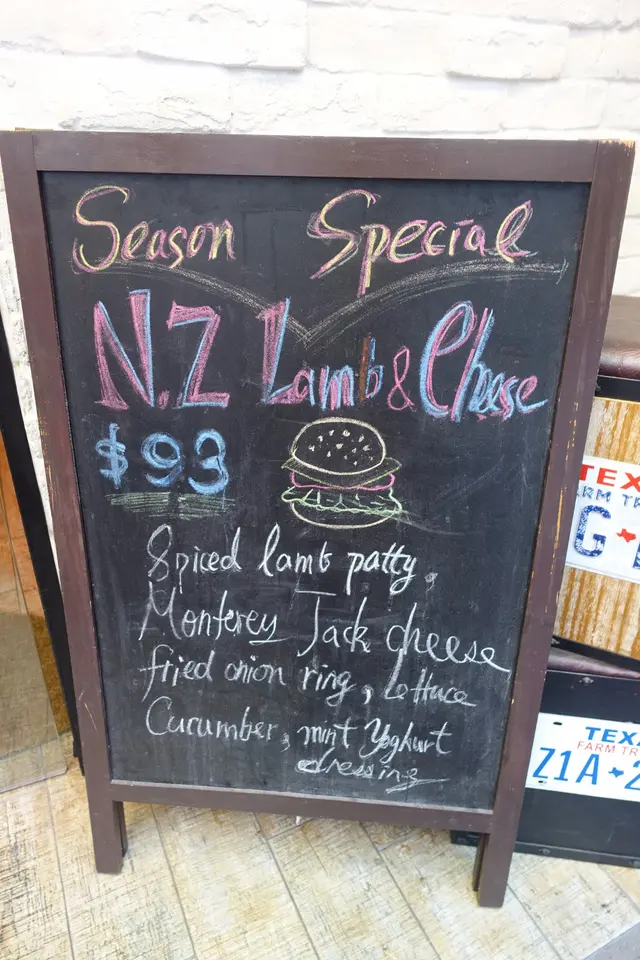 Season Special
N.Z Lamb & Cheese
$93
Spiced lamb patty,
Monterey Jack cheese
fried onion ring, lettuce
Cucumber, mint Yoghurt
dressing
TEX
FARM TR
G
TEXA
FARM TR
Z1A 2